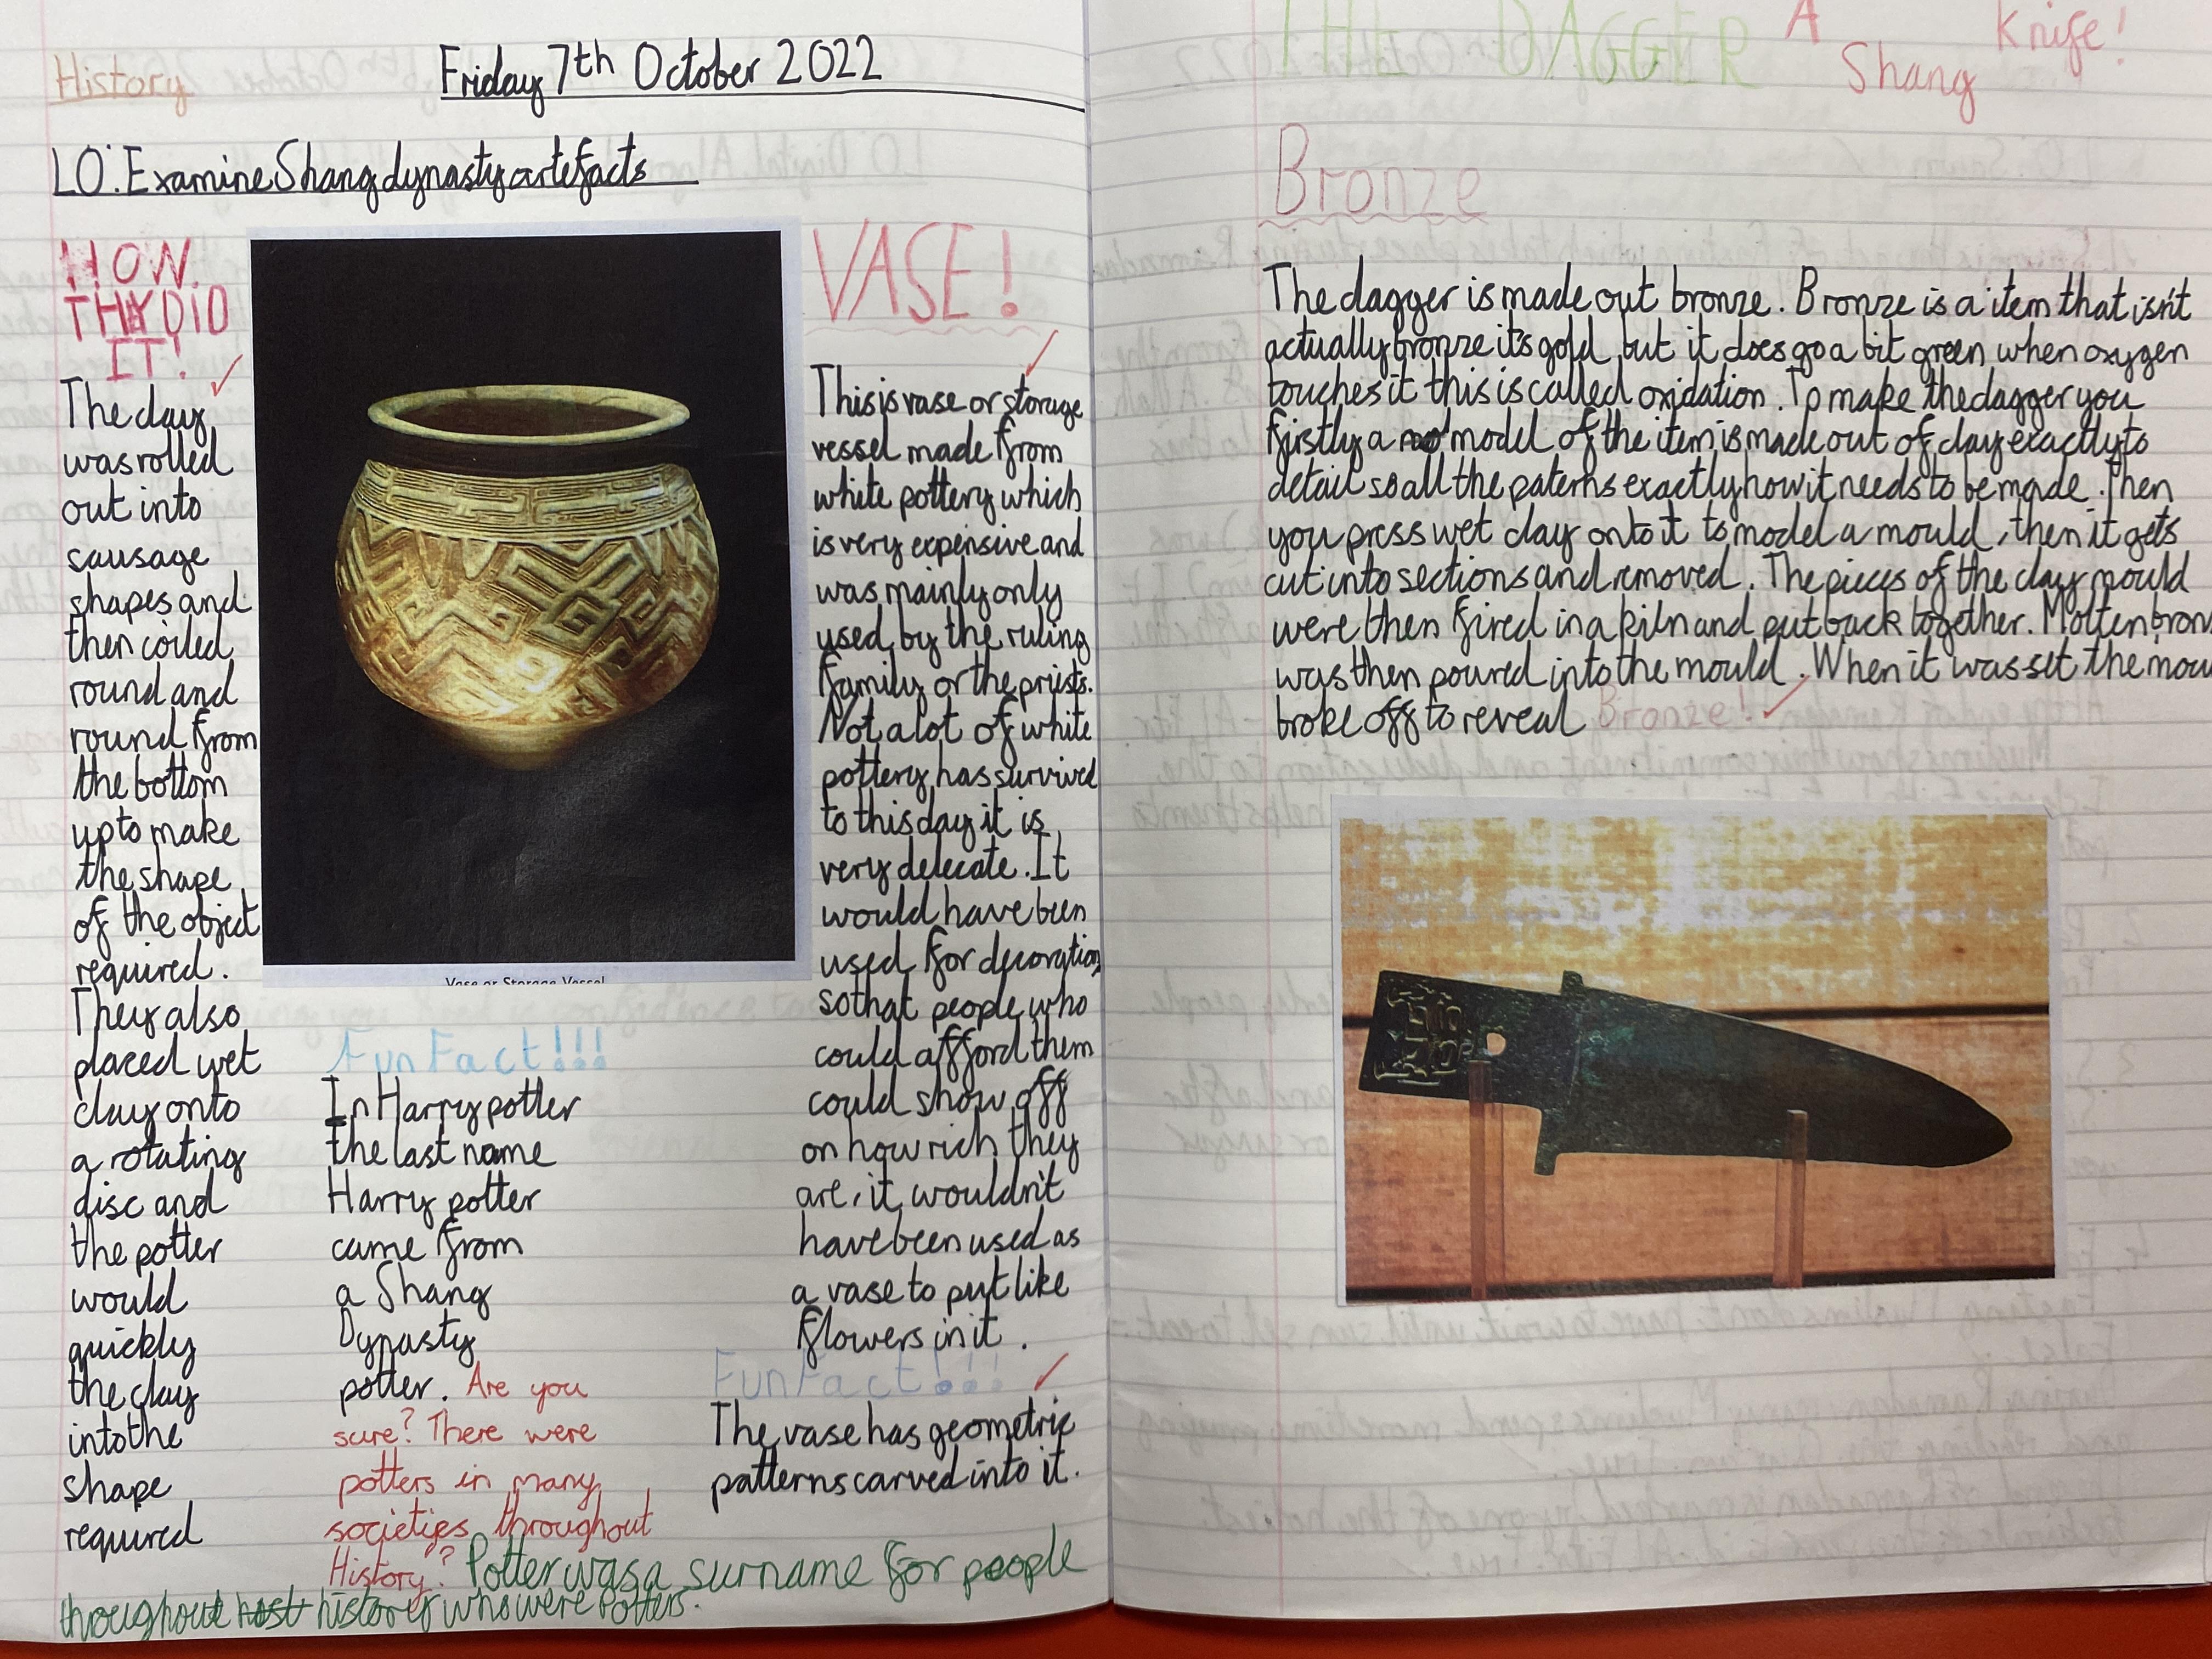 History
Friday 7th October 2022
LO: Examine Shang dynasty artefacts
HOW
THY DID
IT!
The clay
was rolled
out into
sausage
shapes and
then coiled
round and
round from
the bottom
up to make
the shape
of the object
required.
They also
placed wet
clay onto
a rotating
disc and
the potter
would
quickly
the clay
into the
shape
required
Vase or Storage Vessel
Fun Fact!!!
In Harry potter
the last name
Harry potter
came from
a Shang
Dynasty
potter. Are you
sure? There were
potters in many
societies throughout
History? Potter was a surname for people
throughout host history who were Potters.
VASE!
This is vase or storage
vessel made from
white pottery which
is very expensive and
was mainly only
used by the ruling
family or the priests.
Not a lot of white
pottery has survived
to this day it is
very delecate. It
would have been
used for decoration,
so that people who
could afford them
could show off
on how rich they
are, it wouldn't
have been used as
a vase to put like
flowers in it.
Fun Fact!!!
The vase has geometric
patterns carved into it.
THE DAGGER A Shang Knife!
Bronze
The dagger is made out bronze. Bronze is a item that isn't
actually bronze it's gold but it does go a bit green when oxygen
touches it this is called oxidation. To make the dagger you
firstly a model of the item is made out of clay exactly to
detail so all the paterns exactly how it needs to be made. Then
you press wet clay onto it to model a mould, then it gets
cut into sections and removed. The pieces of the clay mould
were then fired in a kiln and put back together. Molten bron
was then poured into the mould. When it was set the mou
broke off to reveal Bronze!